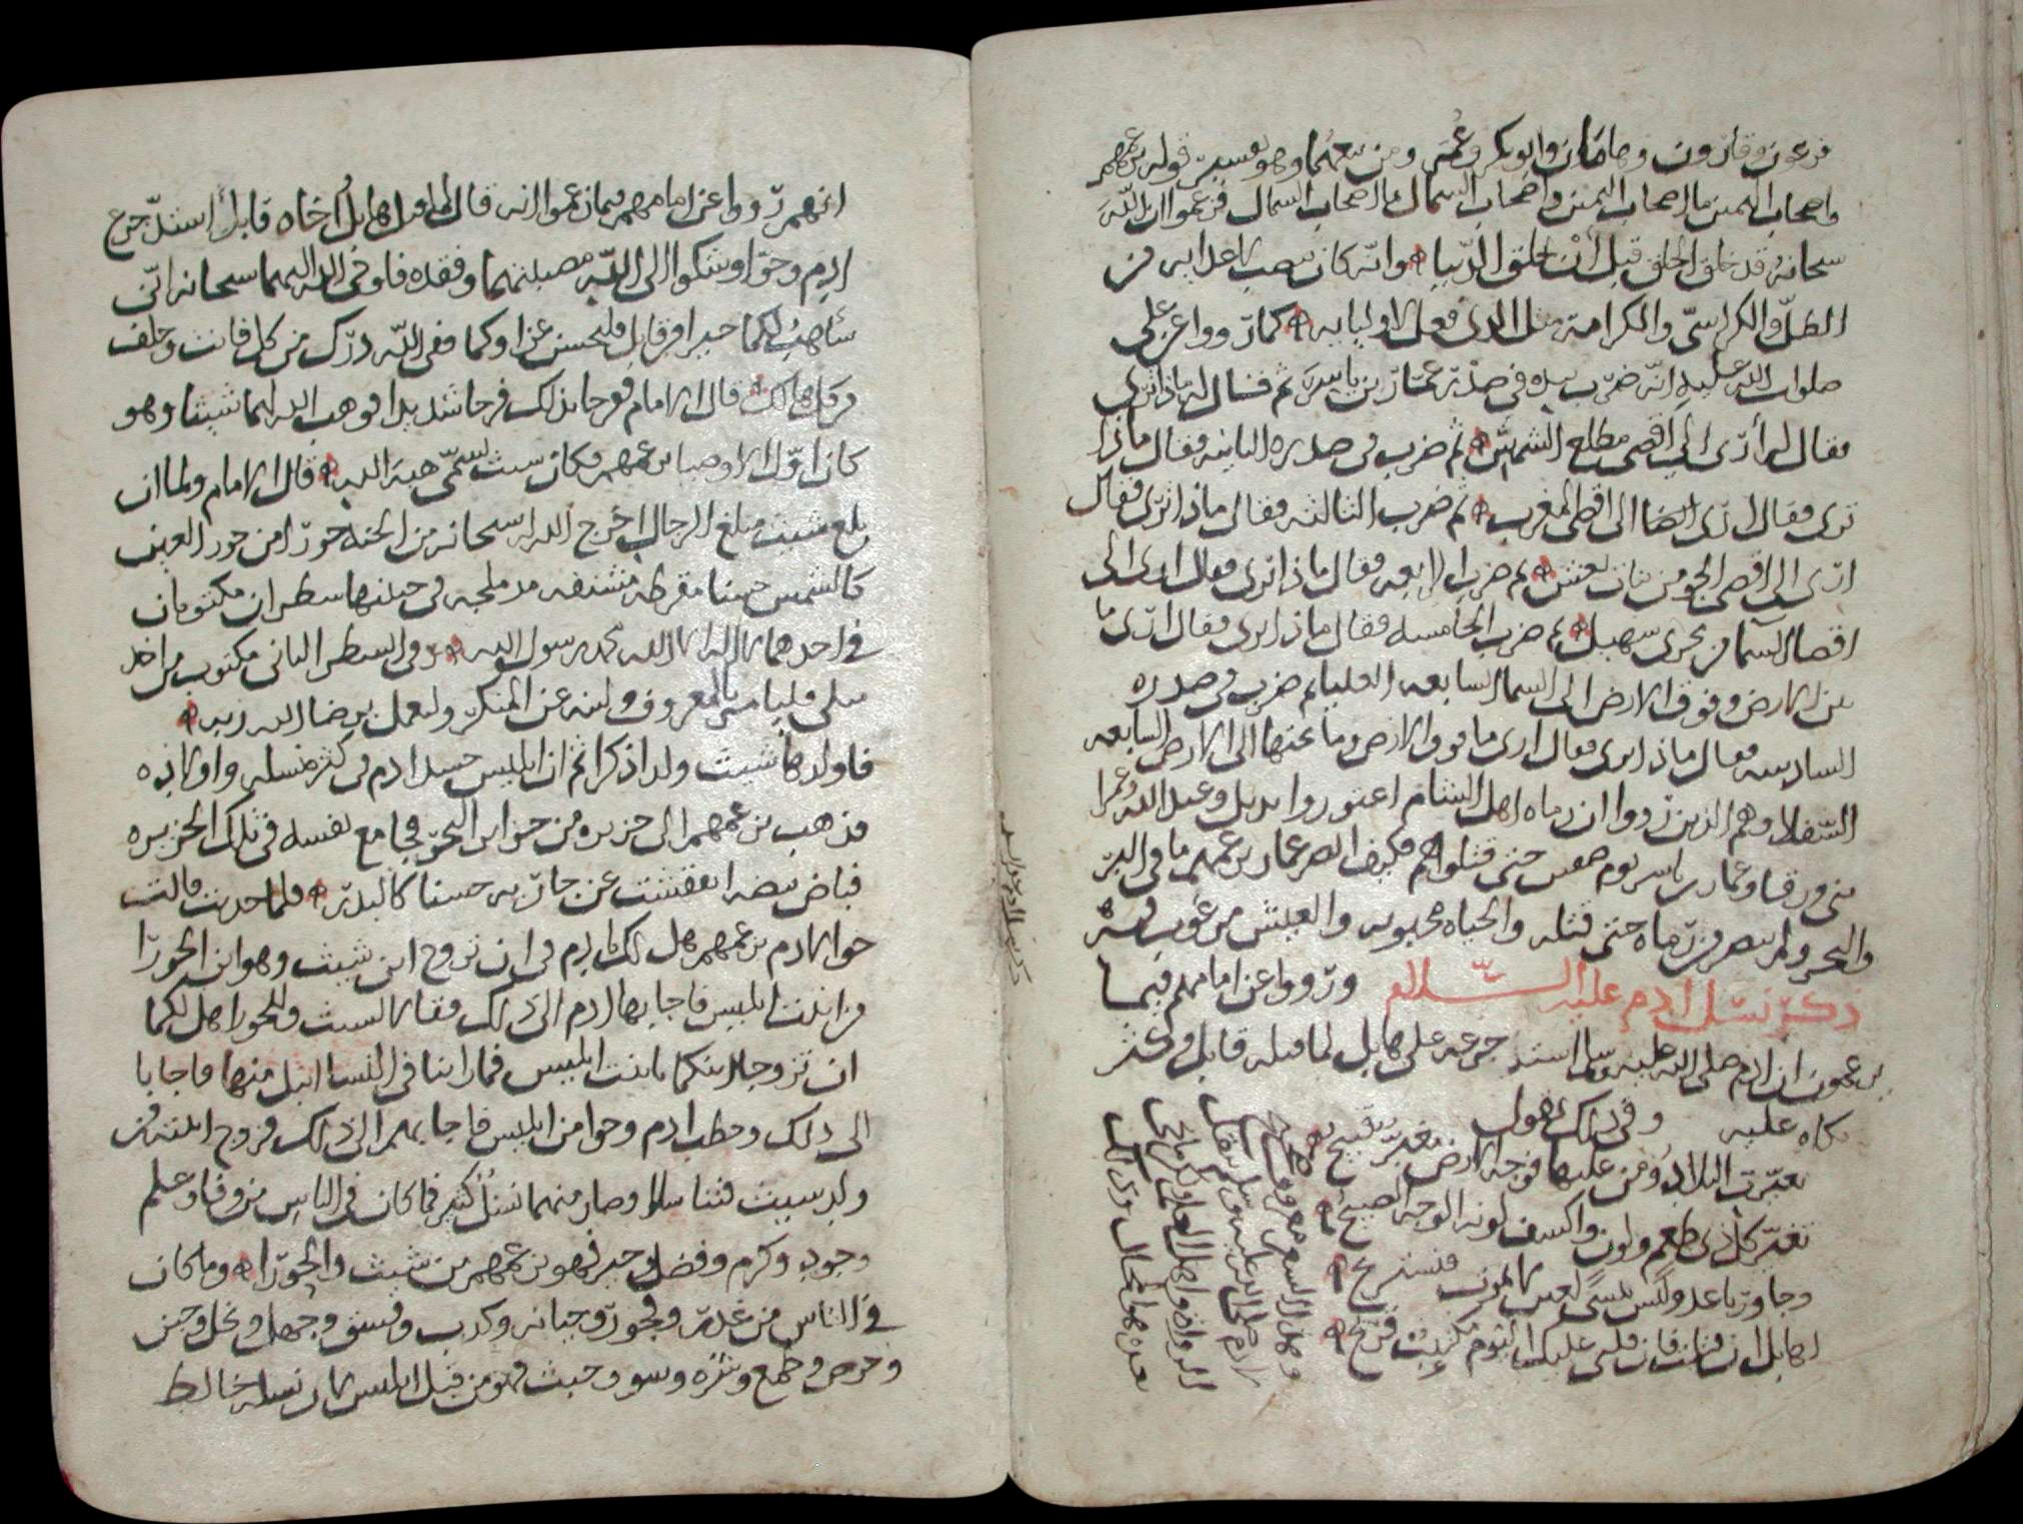 فرعون وقارون وهامان وابو بكر وعمر ومن تبعهما وهو تفسير قوله بزعمهم
واصحاب اليمين ما اصحاب اليمين واصحاب الشمال ما اصحاب الشمال فزعموا ان الله
سبحانه قد خلق الخلق قبل أن يخلق الدنيا وانه كان نصب لاعدايه من
الظل والكراسي والكرامة مثل الذي فعل لاوليايه كما رووا عن علي
صلوات الله عليه انه ضرب بيده في صدر عمار بن ياسر ثم قال له ماذا ترى
فقال له أرى الى اقصى مطلع الشمس ثم ضرب في صدره الثانيه فقال ماذا
ترى فقال ارى ايضا الى اقصى المغرب ثم ضرب الثالثه فقال ماذا ترى فقال
ارى الى اقصى الجو من بنات نعش ثم ضرب الرابعه فقال ماذا ترى فقال ارى الى
اقصا السما من مجرى سهيل ثم ضرب الخامسه فقال ماذا ترى فقال ارى ما
بين الارض وفوق الارض الى السما السابعه العليا ثم ضرب في صدره
السادسه فقال ماذا ترى فقال ارى ما فوق الارض وما تحتها الى الارض السابعه
السفلا وهم الذين رووا ان رماه اهل الشام اعتوروا بديل وعبد الله وعمرا
بني ورقا وعمار بن ياسر يوم صفين حتى قتلوهم فكيف ابصر عمار بزعمهم ما في البر
والبحر ولم يبصر من رماه حتى قتله والحياه محبوبه والعيش مرغوب فيه
ذكر نسل ادم عليه السلام ورووا عن امامهم فيما
يزعمون ان ادم صلى الله عليه وسلم اشتد جزعه على هابل لما قتله قابل وكثر
بكاه عليه وفي ذلك يقول
تغيرت البلاد ومن عليها فوجه الارض مغبر قبيح
تغير كل ذي طعم ولون واكسف لونه الوجه الصبيح
وجاورنا عدو ليس ينسى لعين لا يموت فنستريح
اهابل ان قتلت فان قلبي عليك اليوم مكتئب قريح
انهم رووا عن امامهم فيما زعموا انه قال لما قتل هابل اخاه قابل اشتد جزع
ادم وحوا وشكوا الى الله مصيبتهما وفقده فاوحى الله اليهما سبحانه اني
سأهب لكما خيرا من قابل فليحسن عزاوكما ففي الله درك من كل فايت وخلف
من كل هالك قال الامام ففرحا بذلك فرحا شديدا فوهب الله لهما شيثا وهو
كان اول الاوصيا بزعمهم فكان شيث يسمى هبة الله قال الامام ولما ان
بلغ شيث مبلغ الرجال اخرج الله سبحانه من الجنه حورا من حور العين
كالشمس حسنا مقرطه مشنفه مدملجه في جبينها سطران مكتوبان
في احدهما لا اله الا الله محمد رسول الله وفي السطر الثاني مكتوب من اخذ
فليامر بالمعروف ولينه عن المنكر وليعمل برضا الله ربه
فاولدها شيث ولدا ذكرا ثم ان ابليس حسد ادم في كثرة نسله واولاده
فذهب بزعمهم الى جزيره من جزاير البحر فجامع نفسه في تلك الجزيره
فباض بيضه انفقشت عن جاريه حسنا كالبدر فلما
حوا لادم بزعمهم هل لك يا ادم في ان تزوج ابن شيث وهو ابن الحورا
من ابنت ابليس فاجابها ادم الى ذلك فقالا لشيث وللحورا هل لكما
ان تزوجا ابنكما بابنت ابليس فما راينا في النسا انبل منها فاجابا
الى ذلك وخطب ادم وحوا من ابليس فاجابهم الى ذلك فزوج ابنته من
ولد شيث فتناسلا وصار منهما نسل كثير فما كان في الناس من وفا وعلم
وجود وكرم وفضل وخير فهو بزعمهم من شيث والحورا وما كان
في الناس من غدر وفجور وخيانه وكذب وفسق وجهل وبخل وجبن
وحرص وطمع وشره وسو وخبث فهو من قبل ابليس لان نسله خالط